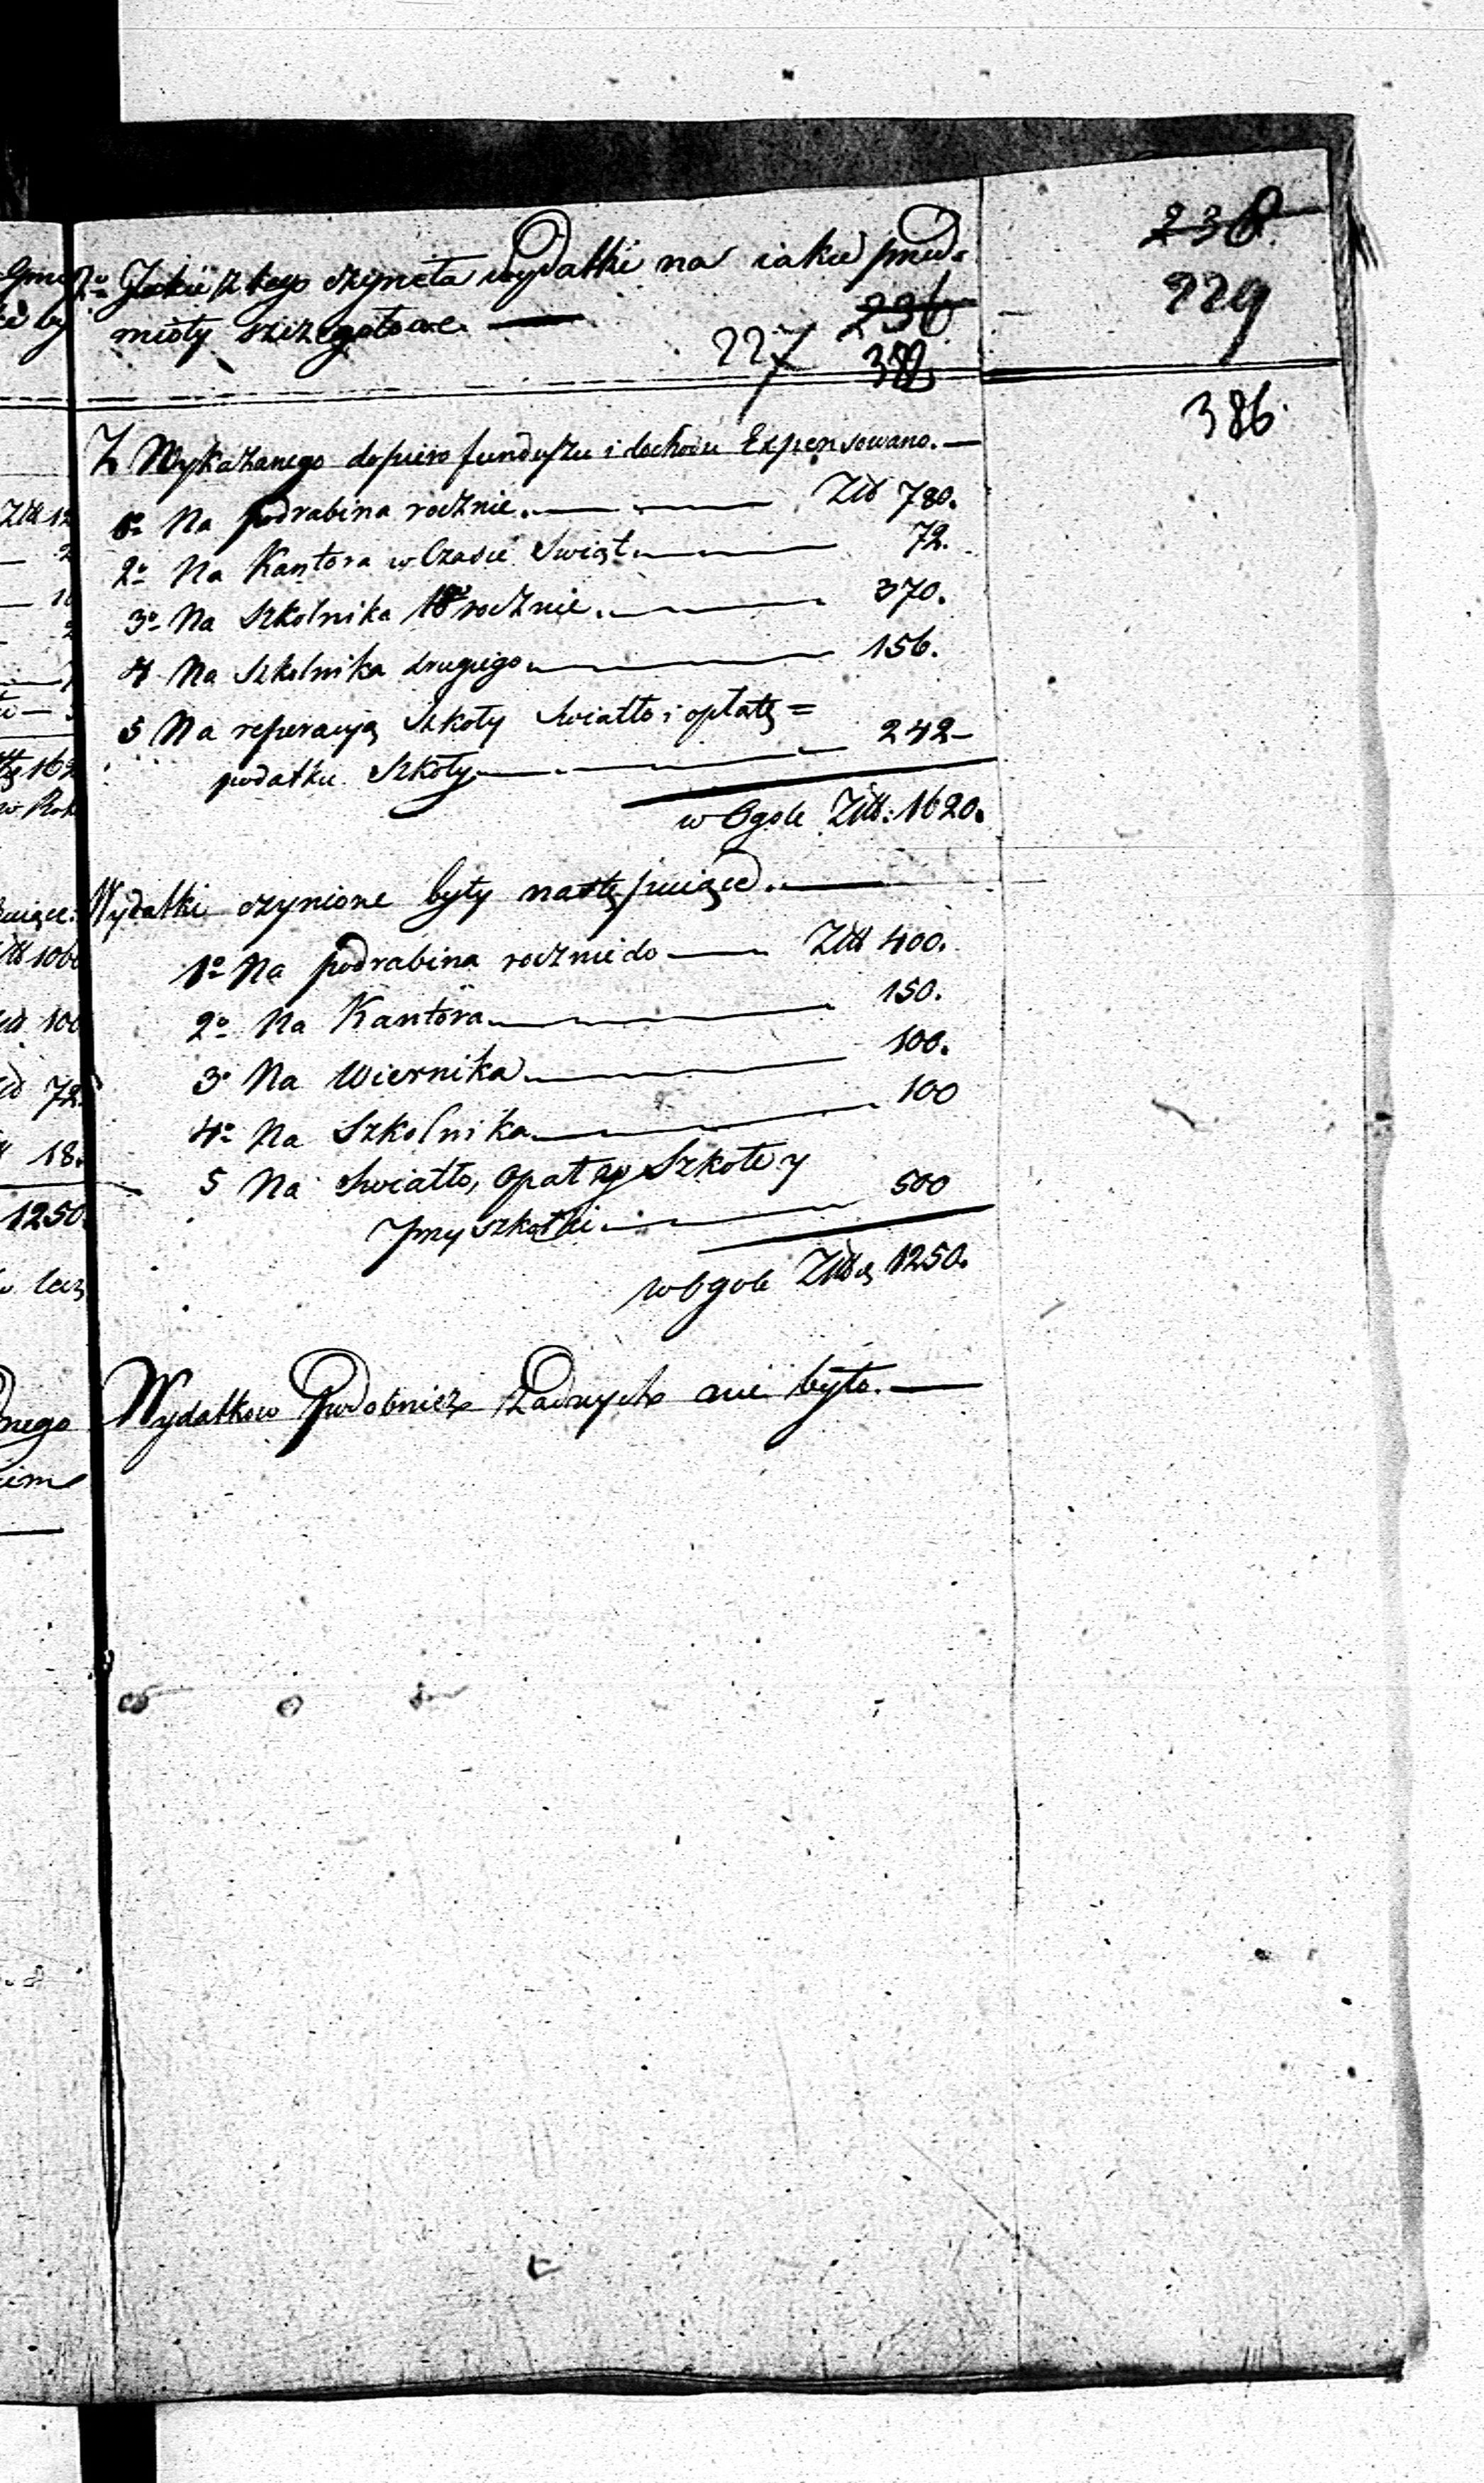 238
229
386.
2o Jakie z tego czyneła wydatki na iakie przed=
mioty szczegołowe.
236
227 382
Z Wykazanego dopiero funduszu i dochodu Expensowano.—
1o Na podrabina rocznie. Złł 780.
2o Na Kantora w Czasie Swiąt 72.
3o Na Szkolnika 1go rocznie. 370.
4 Na Szkolnika drugiego 156.
5 Na reperacyą Szkoły Swiatło i opłatę=
podatku Szkoły 242–
w Ogole Złł: 1620.
Wydatki czynione były następuiące.
1o Na podrabina rocznie do Złł 400.
2o Na Kantora 150.
3o Na Wiernika 100.
4o Na Szkolnika 100
5 Na Swiatło, Opał Szkoły
500
w Ogole Złł 1250.
Wydatkow Podobnież Żadnych nie było.—
Gmi
by
Złł 12
2
162
w Rok
Złł 1060
100
72
18.
1250.
lecz
nego
kiem